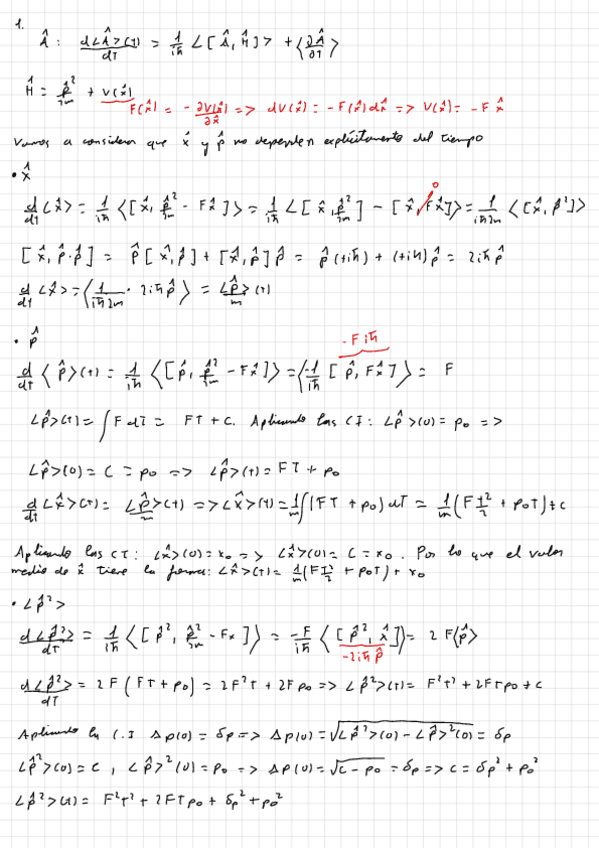 1.
Â : d<Â>(t)/dT = 1/iħ <[Â, Ĥ]> + <∂Â/∂T>
Ĥ = p̂²/2m + V(x̂)
F(x̂) = - ∂V(x̂)/∂x̂ => dV(x̂) = -F(x̂)dx̂ => V(x̂) = -F x̂
Vamos a considerar que x̂ y p̂ no dependen explícitamente del tiempo
• x̂
d/dt <x̂> = 1/iħ <[x̂, p̂²/2m - Fx̂]> = 1/iħ <[x̂, p̂²/2m] - [x̂, Fx̂]> = 1/iħ2m <[x̂, p̂²]>
0
[x̂, p̂·p̂] = p̂[x̂, p̂] + [x̂, p̂]p̂ = p̂(+iħ) + (+iħ)p̂ = 2iħp̂
d/dt <x̂> = <1/iħ2m · 2iħp̂> = <p̂>/m (t)
• p̂
-Fiħ
d/dT <p̂>(t) = 1/iħ <[p̂, p̂²/2m - Fx̂]> = <-1/iħ [p̂, Fx̂]> = F
<p̂>(t) = ∫F dT = FT + C. Aplicando las CI: <p̂>(0) = p₀ =>
<p̂>(0) = C = p₀ => <p̂>(t) = FT + p₀
d/dt <x̂>(t) = <p̂>/m (t) => <x̂>(t) = 1/m ∫(FT + p₀)dT = 1/m (F T²/2 + p₀T) + C
Aplicando las CI: <x̂>(0) = x₀ => <x̂>(0) = C = x₀. Por lo que el valor
medio de x̂ tiene la forma: <x̂>(t) = 1/m (F T²/2 + p₀T) + x₀
• <p̂²>
d<p̂²>/dT = 1/iħ <[p̂², p̂²/2m - Fx]> = -F/iħ <[p̂², x̂]> = 2F<p̂>
-2iħp̂
d<p̂²>/dT = 2F(FT + p₀) = 2F²T + 2Fp₀ => <p̂²>(t) = F²T² + 2FTp₀ + C
Aplicando la C.I Δp(0) = δp => Δp(0) = √<p̂²>(0) - <p̂>²(0) = δp
<p̂²>(0) = C, <p̂>²(0) = p₀ => Δp(0) = √C - p₀ = δp => C = δp² + p₀²
<p̂²>(t) = F²T² + 2FTp₀ + δp² + p₀²